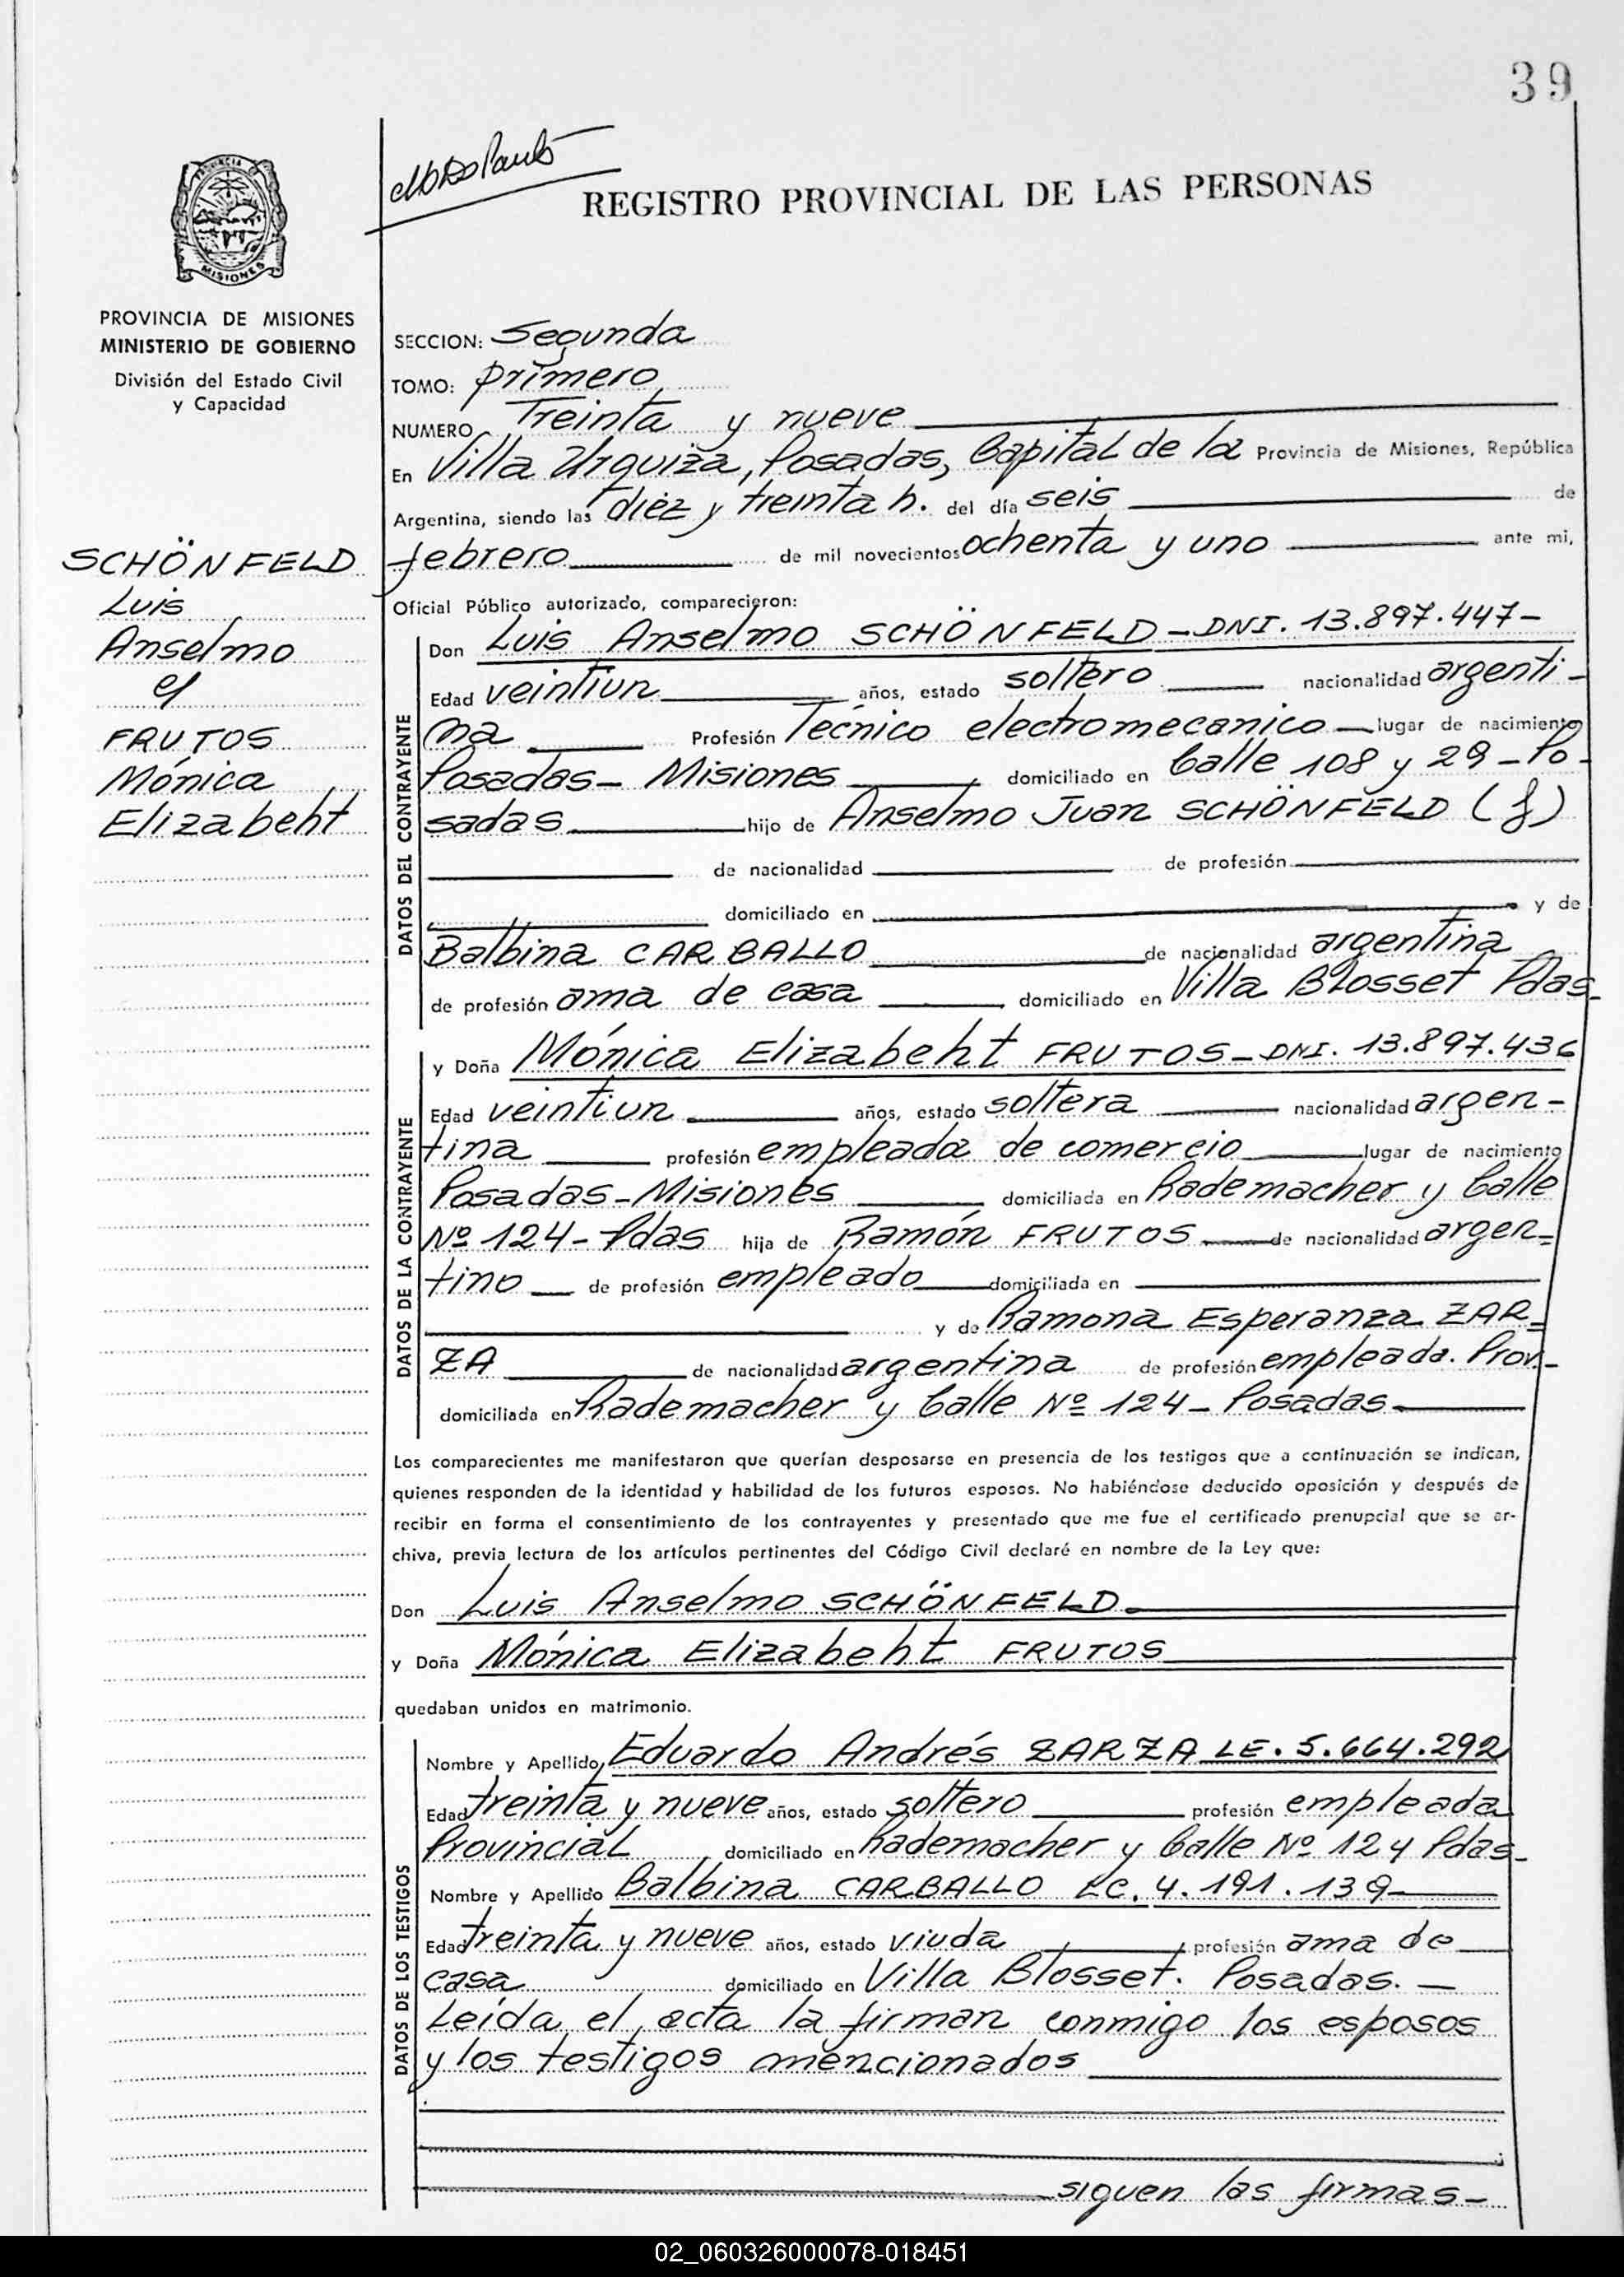 39
PROVINCIA
MISIONES
REGISTRO PROVINCIAL DE LAS PERSONAS
PROVINCIA DE MISIONES
MINISTERIO DE GOBIERNO
División del Estado Civil
y Capacidad
SCHÖNFELD
Luis
Anselmo
y
FRUTOS
Mónica
Elizabeht
SECCION: Segunda
TOMO: primero
NUMERO Treinta y nueve
En Villa Urquiza, Posadas, Capital de la Provincia de Misiones, República
Argentina, siendo las diez y treinta h. del día seis de
febrero de mil novecientos ochenta y uno ante mi,
Oficial Público autorizado, comparecieron:
DATOS DEL CONTRAYENTE
Don Luis Anselmo SCHÖNFELD - DNI. 13.897.447-
Edad veintiun años, estado soltero nacionalidad argenti-
na Profesión Tecnico electromecanico lugar de nacimiento
Posadas - Misiones domiciliado en Calle 108 y 29 - Po-
sadas hijo de Anselmo Juan SCHÖNFELD (f)
de nacionalidad de profesión
domiciliado en y de
Balbina CARBALLO de nacionalidad argentina
de profesión ama de casa domiciliado en Villa Blosset Pdas-
DATOS DE LA CONTRAYENTE
y Doña Mónica Elizabeht FRUTOS - DNI. 13.897.436
Edad veintiun años, estado soltera nacionalidad argen-
tina profesión empleada de comercio lugar de nacimiento
Posadas - Misiones domiciliada en Rademacher y Calle
Nº 124 - Pdas hija de Ramón FRUTOS de nacionalidad argen-
tino de profesión empleado domiciliada en
y de Ramona Esperanza ZAR-
ZA de nacionalidad argentina de profesión empleada. Prov.-
domiciliada en Rademacher y Calle Nº 124 - Posadas
Los comparecientes me manifestaron que querían desposarse en presencia de los testigos que a continuación se indican,
quienes responden de la identidad y habilidad de los futuros esposos. No habiéndose deducido oposición y después de
recibir en forma el consentimiento de los contrayentes y presentado que me fue el certificado prenupcial que se ar-
chiva, previa lectura de los artículos pertinentes del Código Civil declaré en nombre de la Ley que:
Don Luis Anselmo SCHÖNFELD
y Doña Mónica Elizabeht FRUTOS
quedaban unidos en matrimonio.
DATOS DE LOS TESTIGOS
Nombre y Apellido Eduardo Andrés ZARZA LE. 5.664.292
Edad treinta y nueve años, estado soltero profesión empleada
Provincial domiciliado en Rademacher y Calle Nº 124 Pdas-
Nombre y Apellido Balbina CARBALLO LC. 4.191.139
Edad treinta y nueve años, estado viuda profesión ama de
casa domiciliado en Villa Blosset. Posadas.
Leída el acta la firman conmigo los esposos
y los testigos mencionados
siguen las firmas-
02_060326000078-018451